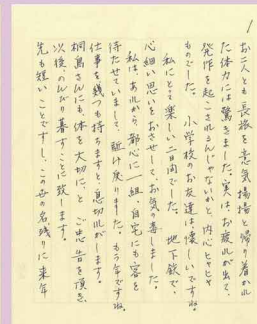 1
お二人とも長旅を意気揚場と帰り着かれ
た体力には驚きました。実は、お疲れが出て、
発作を起こされるんじゃないかと、内心ヒヤヒヤ
ものでした。小学校のお友達は、懐しいですね。
私にとって楽しい二日間でした。地下鉄で、
心細い思いをおさせして、お気の毒しました。
私は、あれから、都心に一組、自宅にも客を
待たせていまして、駈け戻りました。もう年ですね。
仕事を幾つも持ちますと、息切れがします。
桐島さんにも体を大切に、と ご忠告を頂き
次後、のんびり暮すことに致します。
先も短いことですし、この世の名残りに来年